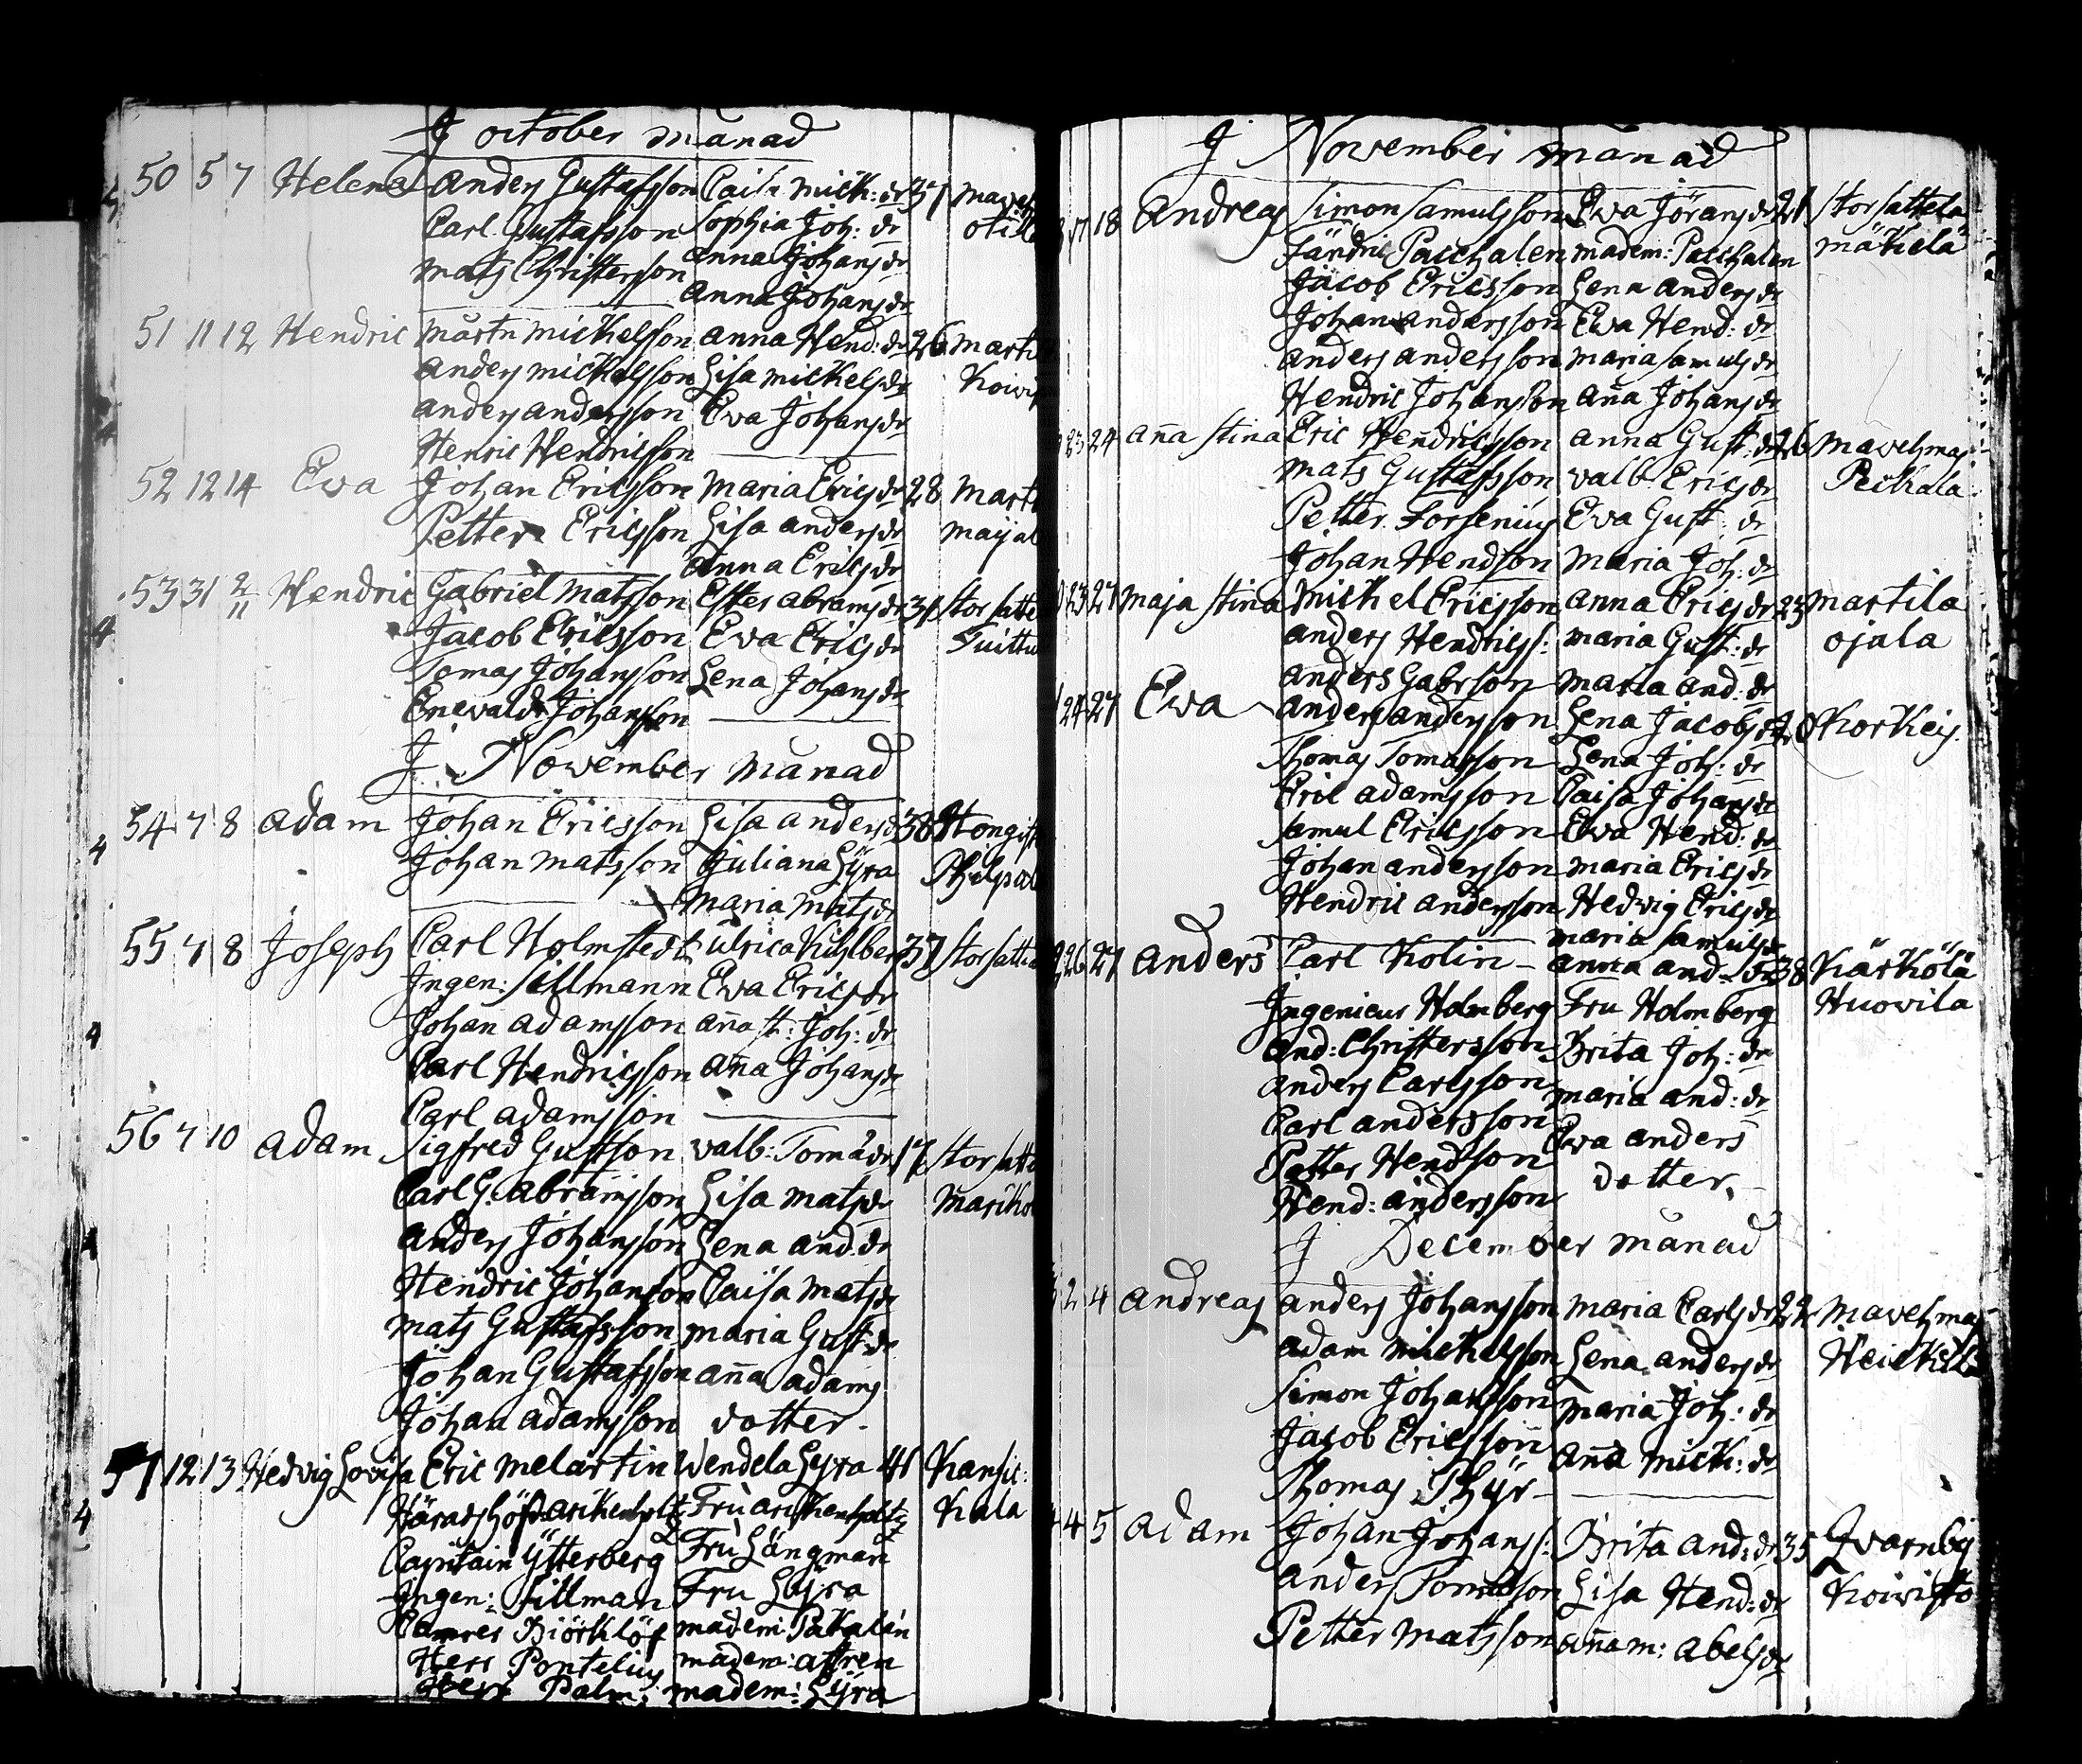 J october månad
50 5 7 Helena Anders Gustafsson Caisa Mich: dr 37
Carl Gustafsson Sophia Joh: dr
Mats Christersson Anna Johansdr
Anna Johansdr
51 11 12 Hendric Mårtn Mickelsson Anna Hend: dr 26
Anders Mickelsson Lisa Mickelsdr
Anders Andersson Eva Johansdr
Henric Hendricsson
52 12 14 Eva Johan Ericsson Maria Ericsdr 28
Petter Ericsson Lisa Andersdr
Anna Ericsdr
53 31 2/11 Hendric Gabriel Matsson Ester Abramsdr
Jacob Ericsson Eva Ericsdr
Tomas Johansson Lena Johansdr
Enevald Johansson
J November månad
54 7 8 Adam Johan Ericsson Lisa Andersd 38
Johan Matsson Juliana Lyra
Maria Matsdr
55 7 8 Joseph Carl Holmstedt Ulrica Kihlber 37
Ingen: Sillmann Eva Ericsdr
Johan Adamsson Aña St: Joh: dr
Carl Hendricsson Aña Johansdr
Carl Adamsson
56 7 10 Adam Sigfred Gustson Valb: Tomådr
Carl G: Abramsson Lisa Matsdr
Anders Johansson Lena And: dr
Hendric Johanson Caisa Matsdr
Mats Gustafsson Maria Gust: dr
Johan Gustafsson Aña Adams
Johan Adamsson dotter.
57 12 13 Hedvig Lovisa Eric Melartin Wendela Lyra 41 Kansic:
Häradshöfd: Arckenholtz Fru Arckenholtz Kala
Capitain Ytterberg Fru Långman
Ingen: Sillman Fru Lyra
Camrer Biörklöf Madem: Pakalén
Herr Pontelius Madem: Affren
Herr Palm: Madem: Lyra
J November månad
17 18 Andreas Simon Samulsson Eva Jöransdr 21 Storsattela
Fändric Paschalen Madem: Paschalen Mäkelä
Jacob Ericsson Lena Andersdr
Johan Andersson Ewa Hend: dr
Anders Andersson Maria Samulsdr
Hendric Johanson Aña Johansdr
23 24 Aña Stina Eric Hendricsson Anna Gust: dr 26 Mavehmas
Mats Gustafsson Valb: Ericsdr Peckala
Petter Forsenius Eva Gust: dr
Johan Hendson Maria Joh: dr
23 27 Maja Stina Mickel Ericsson Anna Ericsdr 23 Martila
Anders Hendricss: Maria Gust: dr Ojala
Anders Gabrson Maria And: dr
24 27 Ewa Anders Andersson Lena Jacobsdr Korkeis
Thomas Tomasson Lena Joh: dr
Eric Adamsson Caisa Johansdr
Samul Ericsson Ewa Hend: dr
Johan Andersson Maria Ericsdr
Hendric Andersson Hedvig Ericsdr
Maria Samulsdr
26 27 Anders Carl Kolin Anna And: dr 38 Kärkölä
Ingenieur Holmberg Fru Holmberg Huovila
And: Christersson Brita Joh: dr
Anders Carlsson Maria And: dr
Carl Andersson Ewa Anders
Petter Hendson dotter.
Hend: Andersson
J December månad
2 4 Andreas Anders Johansson Maria Carlsdr 22 Mavehmas
Adam Mickelsson Lena Andersdr Heickilä
Simon Johansson Maria Joh: dr
Jacob Ericsson Aña Mich: dr
Thomas Thyr
4 5 Adam Johan Johanss: Brita And: dr 35 Qvarnby
Anders Tomasson Lisa Hend: dr Koivisto
Petter Matsson Aña M: Abelsdr